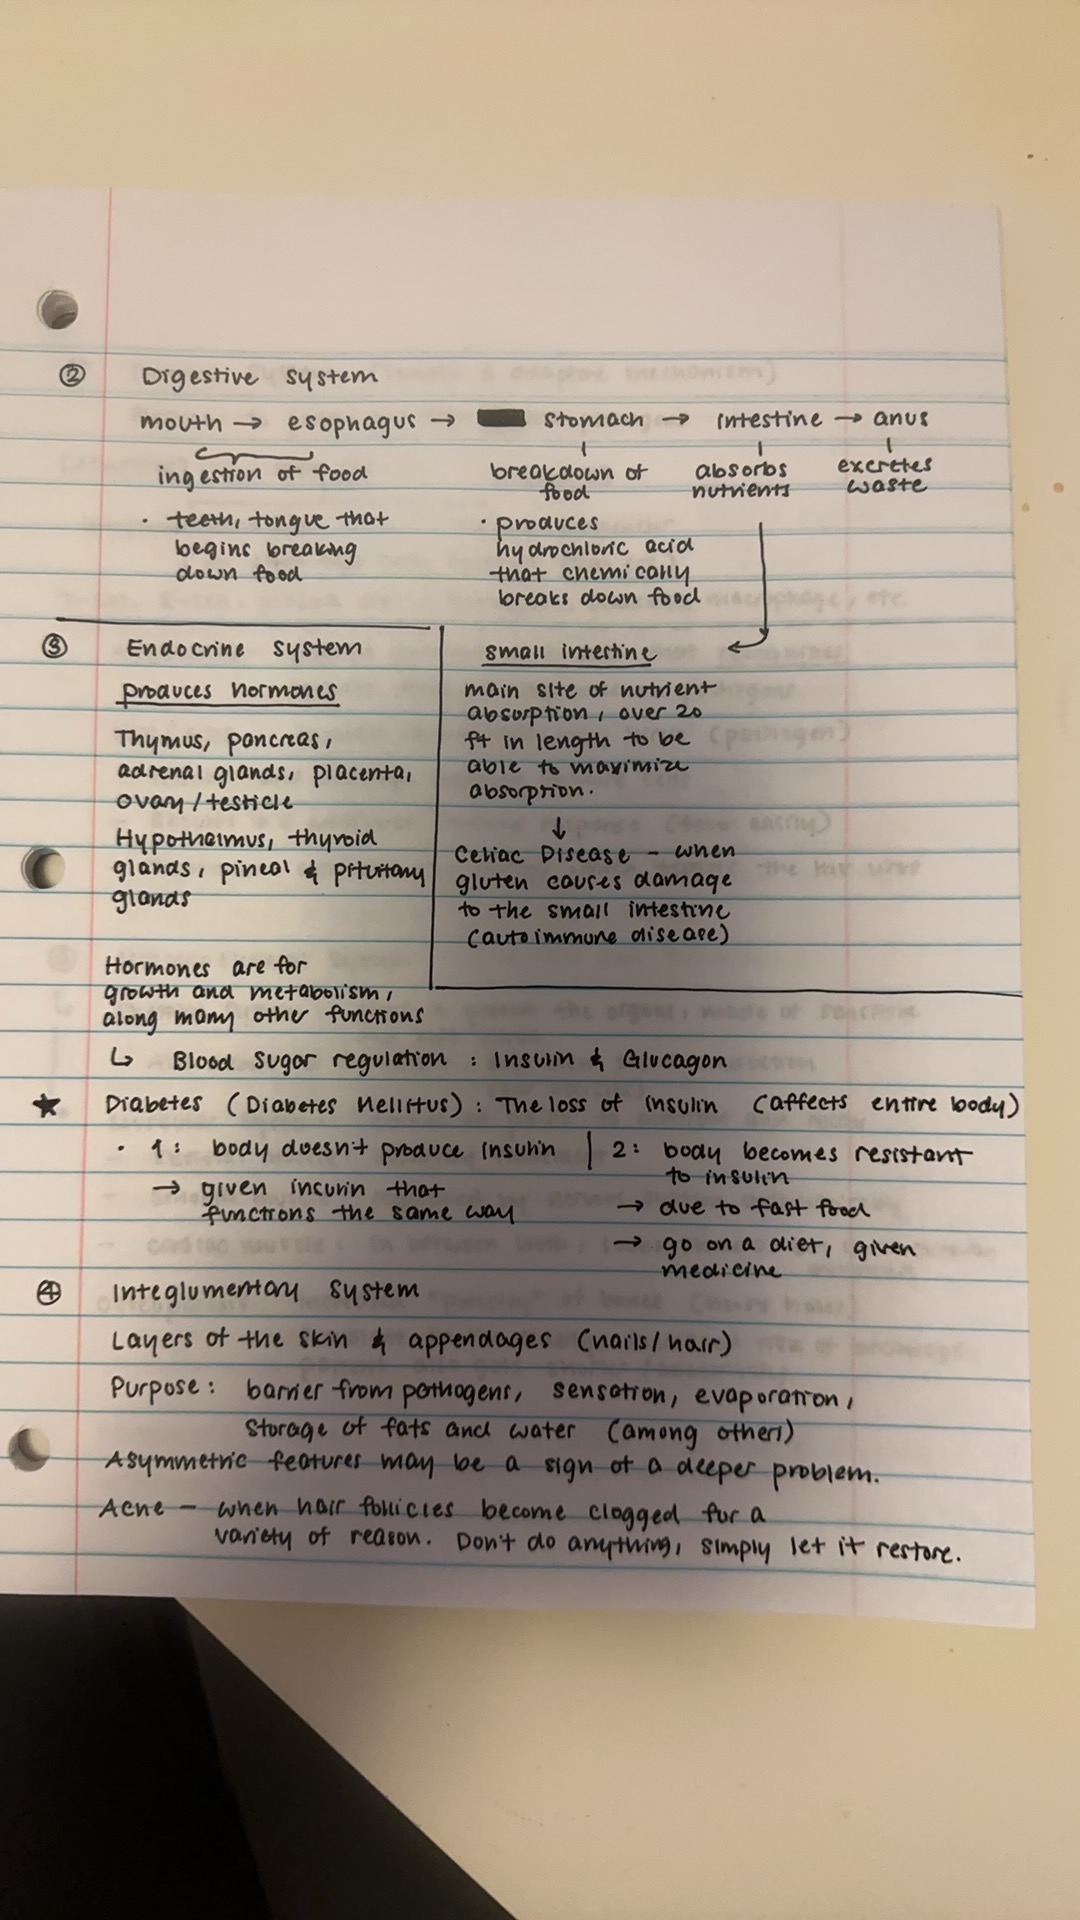 ② Digestive system
mouth → esophagus → stomach → intestine → anus
ingestion of food
breakdown of food
absorbs nutrients
excretes waste
· teeth, tongue that
begins breaking
down food
· produces
hydrochloric acid
that chemically
breaks down food
③ Endocrine system
produces hormones
Thymus, pancreas,
adrenal glands, placenta,
ovary/testicle
Hypothalmus, thyroid
glands, pineal & pituitary
glands
small intestine
main site of nutrient
absorption, over 20
ft in length to be
able to maximize
absorption.
↓
Celiac Disease - when
gluten causes damage
to the small intestine
(autoimmune disease)
Hormones are for
growth and metabolism,
along many other functions
↳ Blood sugar regulation : Insulin & Glucagon
★ Diabetes (Diabetes Mellitus) : The loss of insulin (affects entire body)
· 1: body doesn't produce insulin
→ given insulin that
functions the same way
2: body becomes resistant
to insulin
→ due to fast food
→ go on a diet, given
medicine
④ Integlumentary system
Layers of the skin & appendages (nails/hair)
Purpose: barrier from pathogens, sensation, evaporation,
storage of fats and water (among others)
Asymmetric features may be a sign of a deeper problem.
Acne - when hair follicles become clogged for a
variety of reason. Don't do anything, simply let it restore.